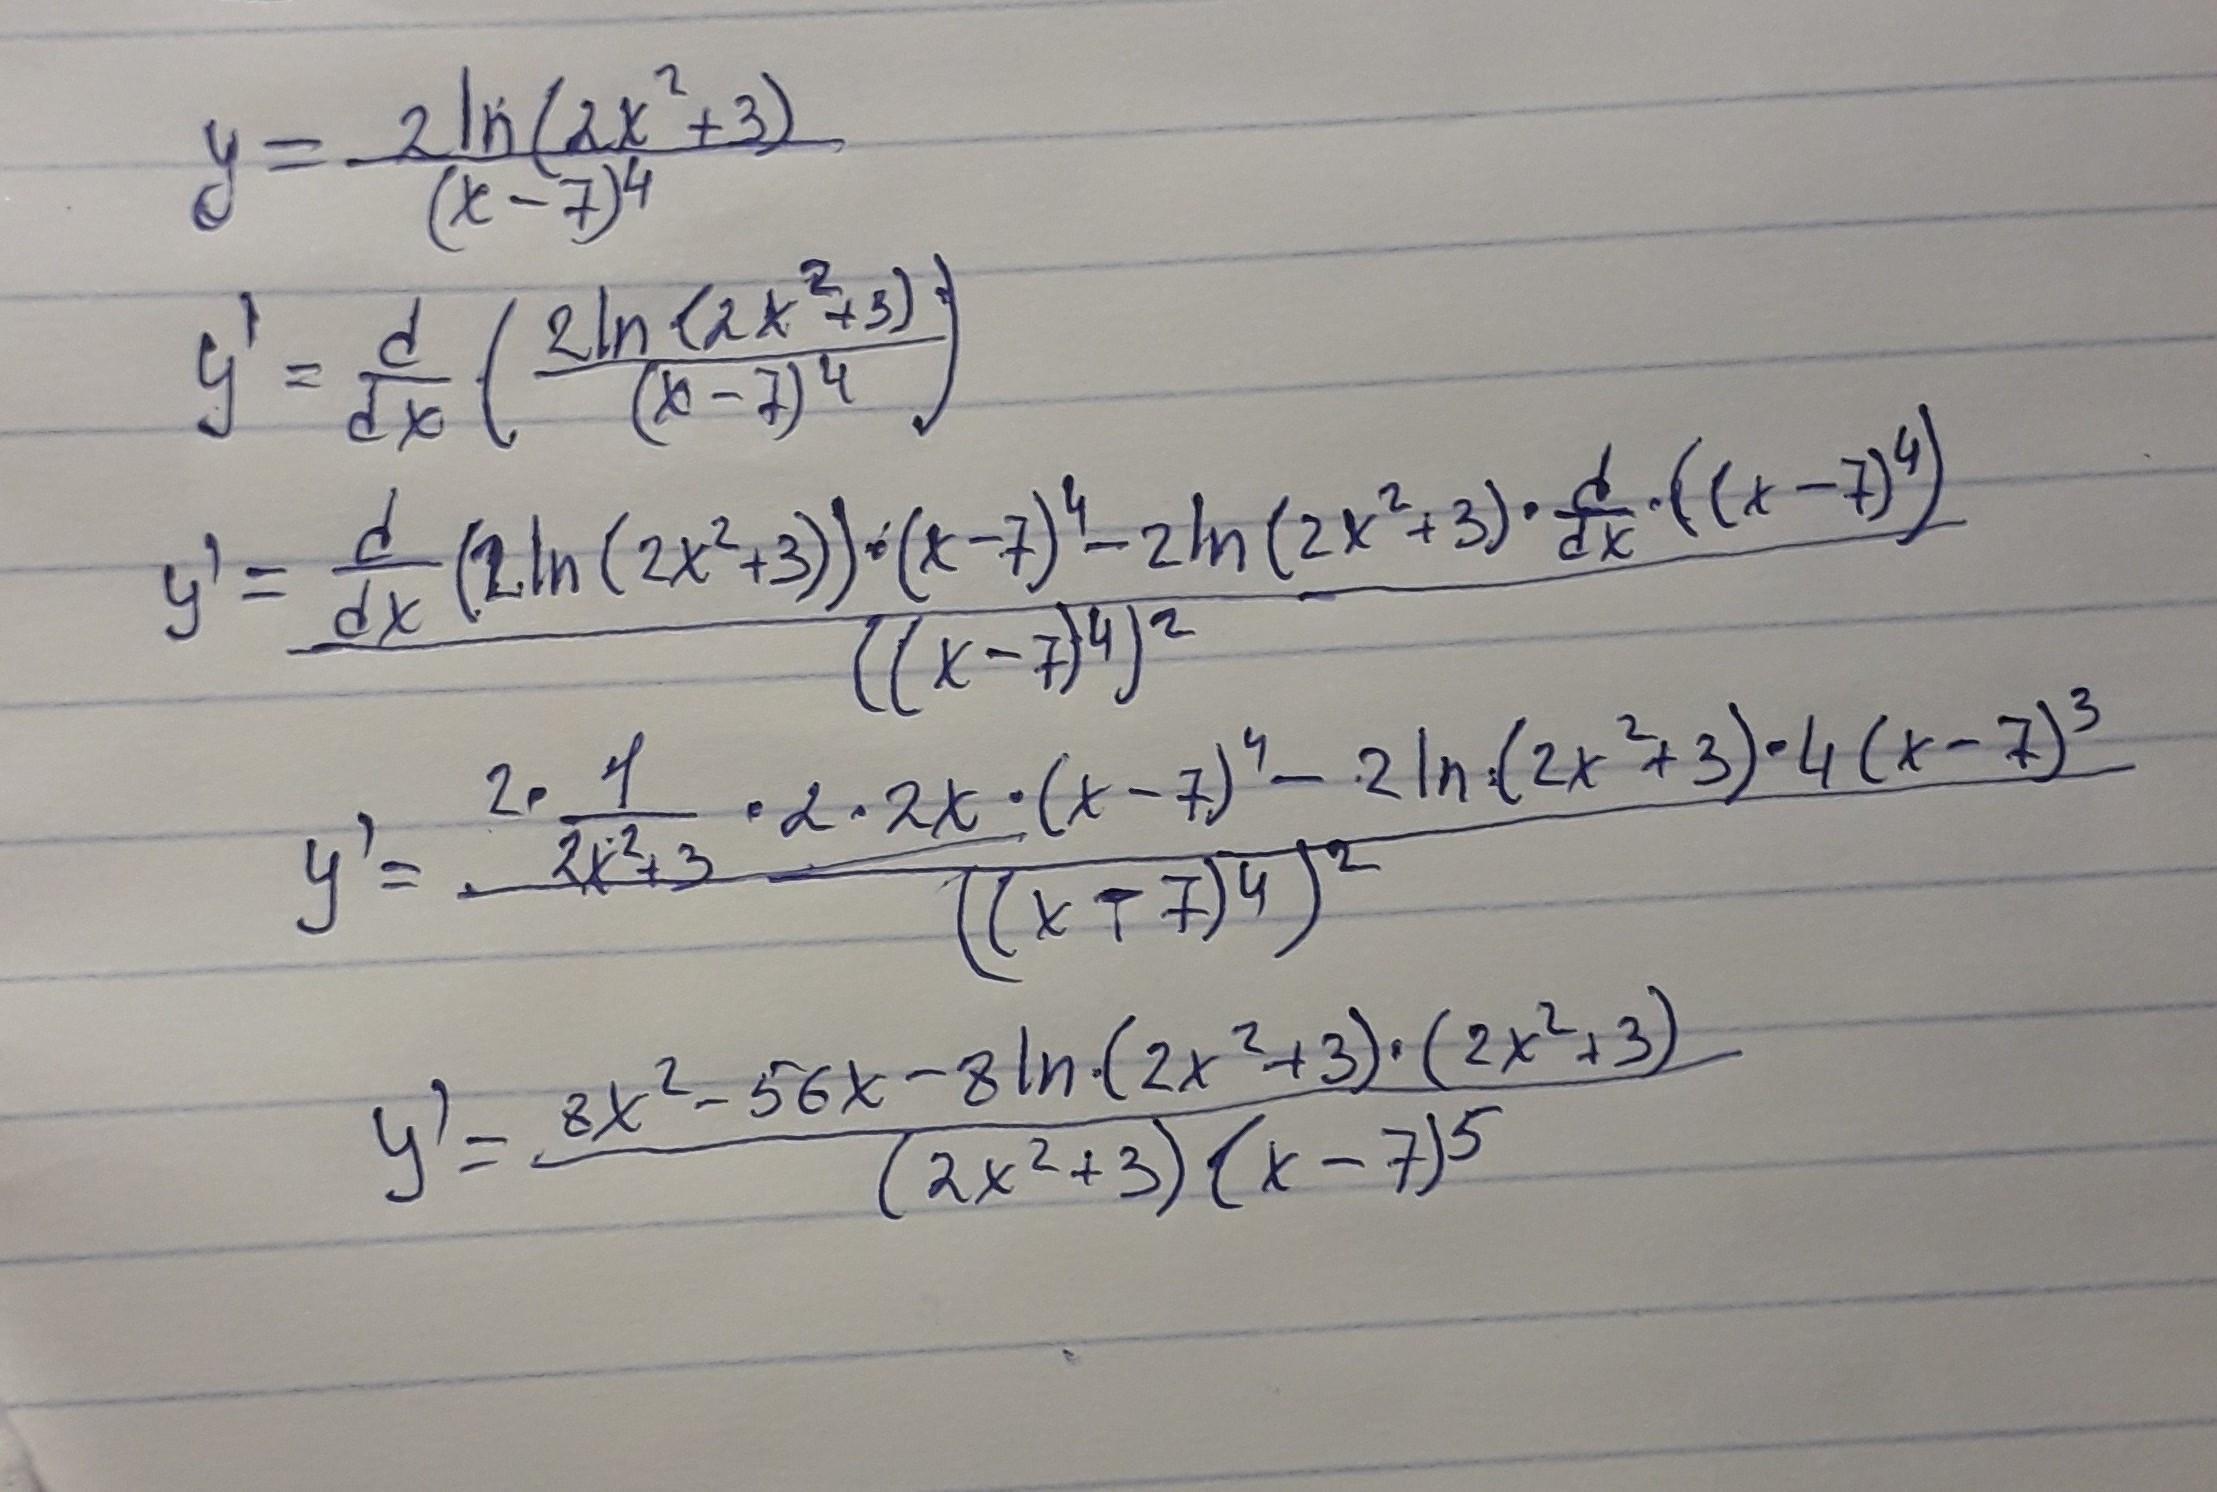 y = 2ln(2x²+3) / (x-7)⁴
y' = d/dx (2ln(2x²+3) / (x-7)⁴)
y' = (d/dx (2ln(2x²+3))·(x-7)⁴ - 2ln(2x²+3)·d/dx·((x-7)⁴)) / ((x-7)⁴)²
y' = (2·1/(2x²+3)·2·2x·(x-7)⁴ - 2ln(2x²+3)·4(x-7)³) / ((x-7)⁴)²
y' = (8x²-56x-8ln(2x²+3)·(2x²+3)) / ((2x²+3)(x-7)⁵)